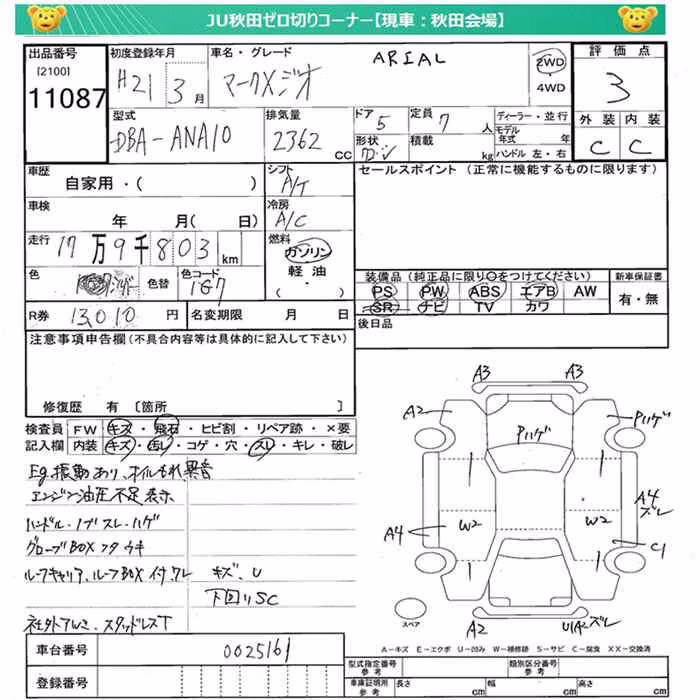 JU秋田ゼロ切りコーナー【現車：秋田会場】
出品番号
[2100]
11087
初度登録年月
H21 3月
車名・グレード
マークXジオ
ARIAL
2WD
4WD
評価点
3
外装 内装
C C
型式
DBA-ANA10
排気量
2362 cc
ドア 5
形状 ワゴン
定員 7 人
積載 kg
ディーラー・並行
モデル年式 年
ハンドル 左・右
車歴
自家用・( )
シフト
A/T
セールスポイント（正常に機能するものに限ります）
車検
年 月( 日)
冷房
A/C
走行 17万9千803km
燃料
ガソリン
軽油
・( )
色
色替
色コード
1G7
装備品（純正品に限り○をつけてください）
PS PW ABS エアB AW
SR ナビ TV カワ
新車保証書
有・無
R券 13,010円
名変期限 月 日
後日品
注意事項申告欄(不具合内容等は具体的に記入して下さい)
修復歴 有 〔箇所 〕
検査員記入欄
FW キズ・飛石・ヒビ割・リペア跡・×要
内装 キズ・汚レ・コゲ・穴・スレ・キレ・破レ
Eg振動あり、オイルもれ異音
エンジン油圧不足表示
ハンドル・ノブスレ・ハゲ
グローブBOXフタウキ
ルーフキャリア、ルーフBOX付、ワレ キズ、U
下回りSC
社外アルミ、スタッドレスT
A3 A3
A2 Pハゲ
Pハゲ
A4 W2 W2 A4 ズレ
C1
スペア
A2 U1A2ズレ
A－キズ E－エクボ U－凹み W－補修跡 S－サビ C－腐食 XX－交換済
車台番号 0025161
登録番号
型式指定番号 参考
類別区分番号 参考
車庫証明用 参考
長さ cm 幅 cm 高さ cm